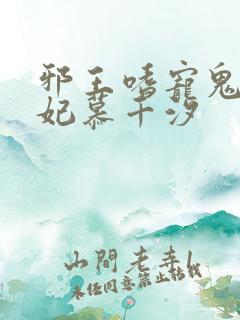 邪王嗜宠鬼
妃慕千汐
山間老寺
未经同意禁止转载